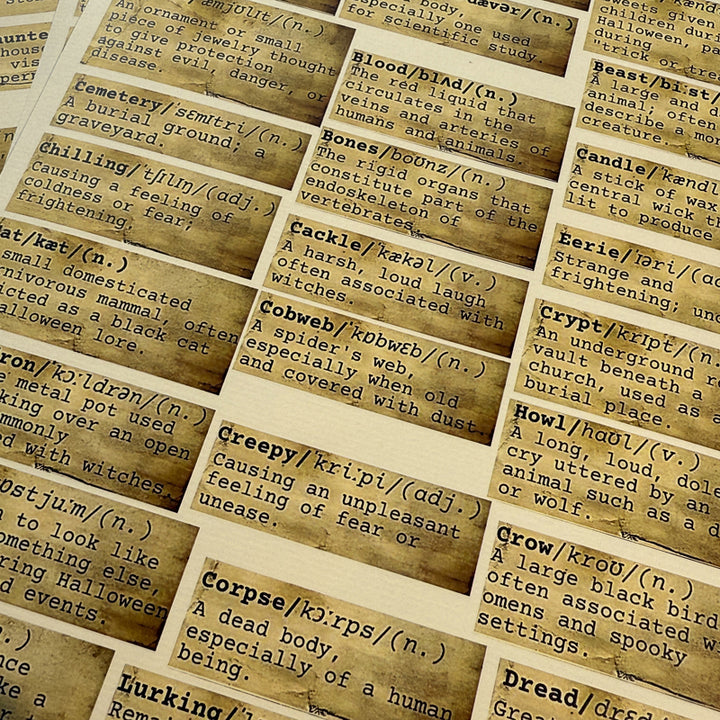 aunte
house
vis
per
/(n.)
An ornament or small
piece of jewelry thought
to give protection
against evil, danger, or
disease.
Cemetery/ˈsɛmɪtrɪ/(n.)
A burial ground; a
graveyard.
Chilling/ˈtʃɪlɪŋ/(adj.)
Causing a feeling of
coldness or fear;
frightening.
at/kæt/(n.)
small domesticated
rnivorous mammal often
icted as a black cat
alloween lore.
ron/ˈkɔːldrən/(n.)
e metal pot used
king over an open
mmonly
ed with witches.
ɒstjuːm/(n.)
to look like
omething else,
ring Halloween
d events.
.)
nce
ke a
body,
especially one used
for scientific study.
Blood/blʌd/(n.)
The red liquid that
circulates in the
veins and arteries of
humans and animals.
Bones/boʊnz/(n.)
The rigid organs that
constitute part of the
endoskeleton of
vertebrates.
Cackle/ˈkækəl/(v.)
A harsh, loud laugh
often associated with
witches.
Cobweb/ˈkɒbwɛb/(n.)
A spider's web,
especially when old
and covered with dust.
Creepy/ˈkriːpi/(adj.)
Causing an unpleasant
feeling of fear or
unease.
Corpse/kɔːrps/(n.)
A dead body,
especially of a human
being.
Lurking/ˈl
Remai
sweets given
children durin
Halloween, pa
during
"trick or tre
Beast/biːst/
A large and d
animal; often
describe a mo
creature.
Candle/ˈkændl
A stick of wax
central wick th
lit to produce
Eerie/ˈɪəri/(ad
Strange and
frightening; unc
Crypt/krɪpt/(n.
An underground r
vault beneath a
church, used as a
burial place.
Howl/haʊl/(v.)
A long, loud, dole
cry uttered by an
animal such as a d
or wolf.
Crow/kroʊ/(n.)
A large black bird
often associated wi
omens and spooky
settings.
Dread/drɛd
Great